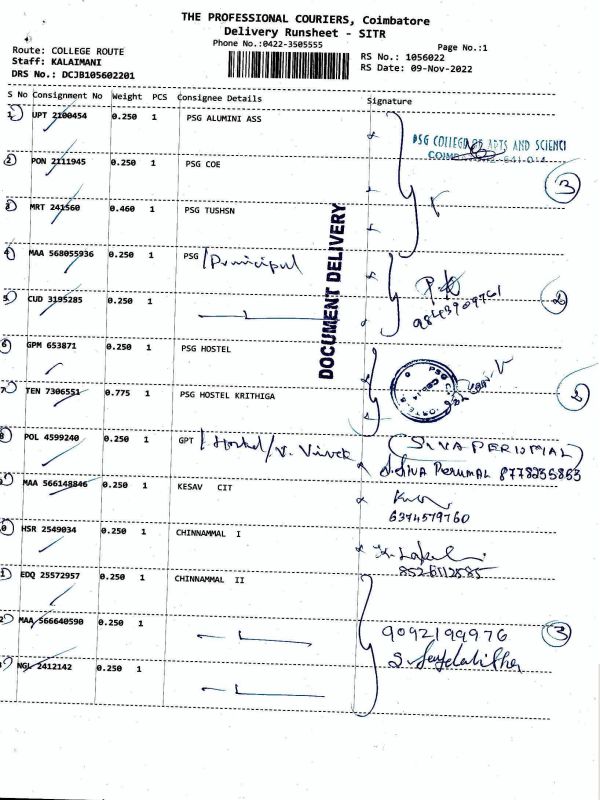 THE PROFESSIONAL COURIERS, Coimbatore
Delivery Runsheet - SITR
Phone No.:0422-3505555
Page No.:1
Route: COLLEGE ROUTE
Staff: KALAIMANI
DRS No.: DCJB105602201
RS No.: 1056022
RS Date: 09-Nov-2022
S No Consignment No Weight PCS Consignee Details Signature
1 UPT 2100454 0.250 1 PSG ALUMINI ASS
PSG COLLEGE OF ARTS AND SCIENC
2 PON 2111945 0.250 1 PSG COE
3
3 MRT 241560 0.460 1 PSG TUSHSN
DOCUMENT DELIVERY
4 MAA 568055936 0.250 1 PSG
9843909761
2
5 CUD 3195285 0.250 1
6 GPM 653871 0.250 1 PSG HOSTEL
7 TEN 7306551 0.775 1 PSG HOSTEL KRITHIGA
2
8 POL 4599240 0.250 1 GPT / Hostel / V. Vivek
(SIVA PERUMAL)
S. SIVA PERUMAL 8778235853
MAA 566148846 0.250 1 KESAV CIT
6374579760
0 HSR 2549034 0.250 1 CHINNAMMAL I
8526112585
1 EDQ 25572957 0.250 1 CHINNAMMAL II
2 MAA 566640590 0.250 1
9092199976
3
NGL 2412142 0.250 1